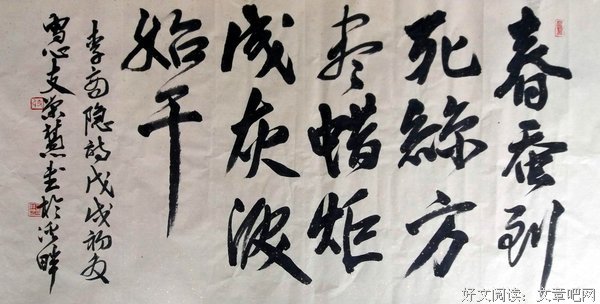 春蚕到
死絲方
尽蜡炬
成灰淚
始干
李商隐詩戊戌初夏
雪心支荣慧書於沙畔
好文阅读：文章吧网